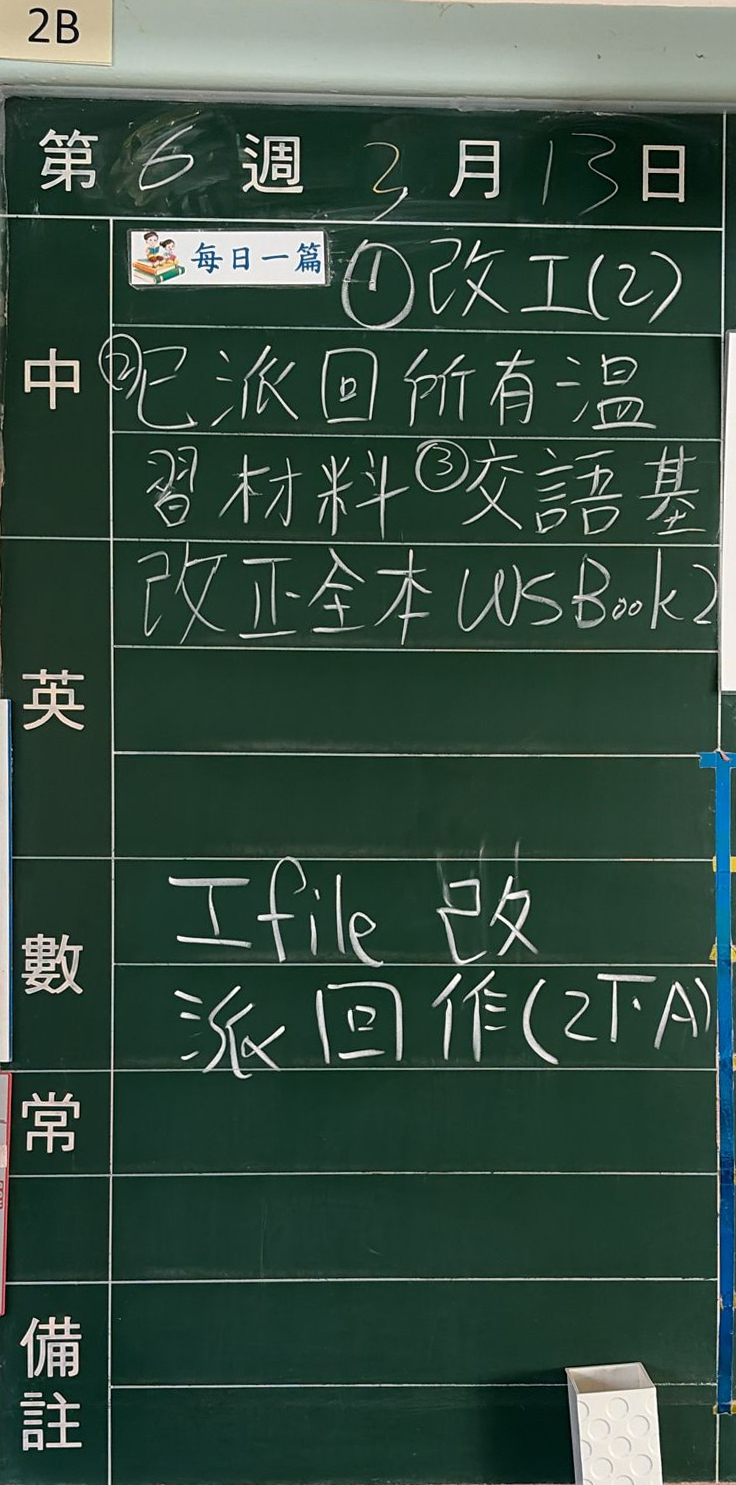 2B
第6週3月13日
中
每日一篇 ①改工(2)
②已派回所有温
習材料③交語基
英
改正全本WSBook2
數
工file 改
派回作(2下A)
常
備註